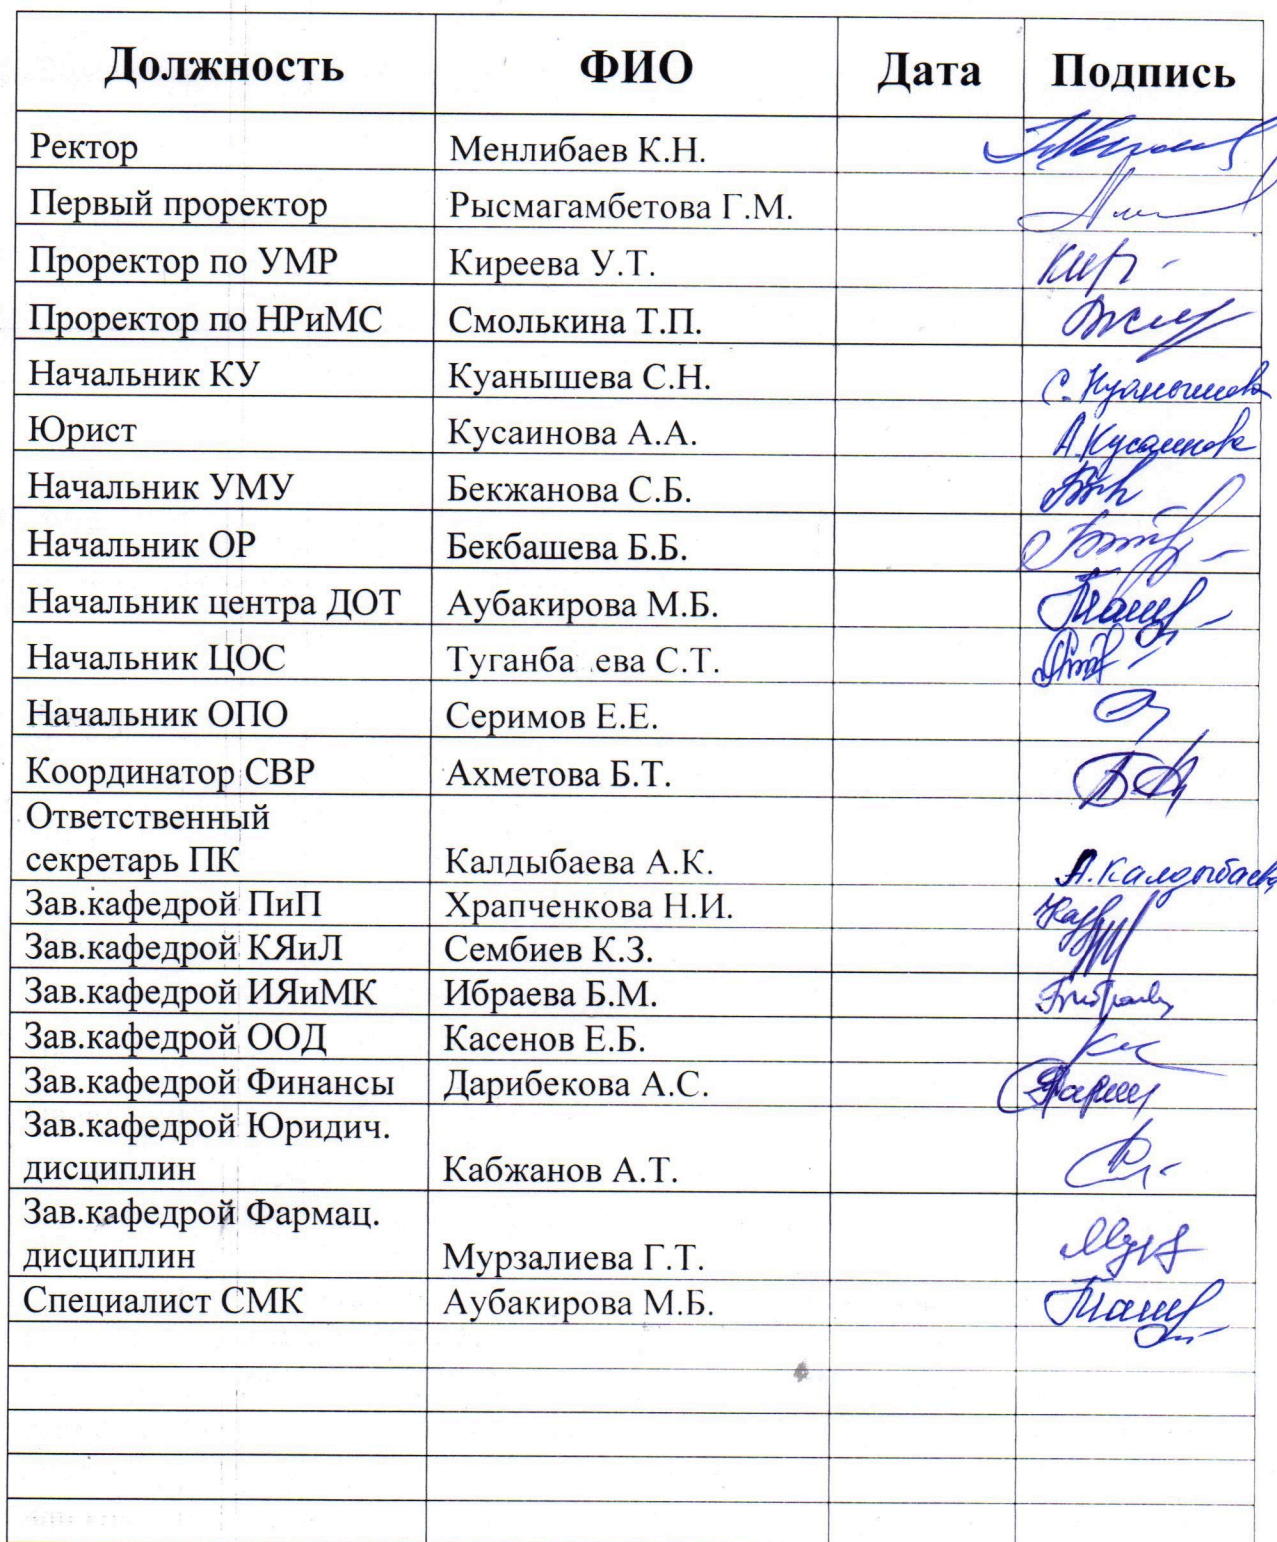 Должность ФИО Дата Подпись
Ректор Менлибаев К.Н.
Первый проректор Рысмагамбетова Г.М.
Проректор по УМР Киреева У.Т.
Проректор по НРиМС Смолькина Т.П.
Начальник КУ Куанышева С.Н. С. Куанышева
Юрист Кусаинова А.А. А.Кусаинова
Начальник УМУ Бекжанова С.Б.
Начальник ОР Бекбашева Б.Б.
Начальник центра ДОТ Аубакирова М.Б.
Начальник ЦОС Туганба ева С.Т.
Начальник ОПО Серимов Е.Е.
Координатор СВР Ахметова Б.Т.
Ответственный
секретарь ПК Калдыбаева А.К. А.Калдыбаева
Зав.кафедрой ПиП Храпченкова Н.И.
Зав.кафедрой КЯиЛ Сембиев К.З.
Зав.кафедрой ИЯиМК Ибраева Б.М.
Зав.кафедрой ООД Касенов Е.Б.
Зав.кафедрой Финансы Дарибекова А.С.
Зав.кафедрой Юридич.
дисциплин Кабжанов А.Т.
Зав.кафедрой Фармац.
дисциплин Мурзалиева Г.Т.
Специалист СМК Аубакирова М.Б.